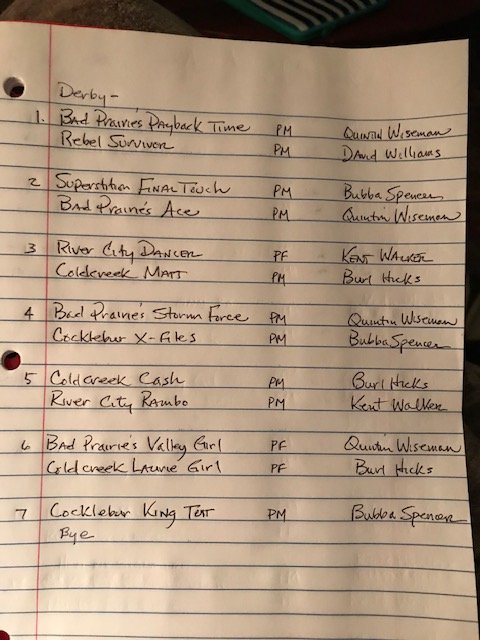 Derby-
1. Bad Prairie's Payback Time PM Quintin Wiseman
Rebel Survivor PM David Williams
2 Superstition Final Touch PM Bubba Spencer
Bad Prairie's Ace PM Quintin Wiseman
3 River City Dancer PF Kent Walker
Coldcreek Matt PM Burl Hicks
4 Bad Prairie's Storm Force PM Quintin Wiseman
Cocklebur X-Files PM Bubba Spencer
5 Coldcreek Cash PM Burl Hicks
River City Rambo PM Kent Walker
6 Bad Prairie's Valley Girl PF Quintin Wiseman
Coldcreek Laurie Girl PF Burl Hicks
7 Cocklebur King Tut PM Bubba Spencer
Bye